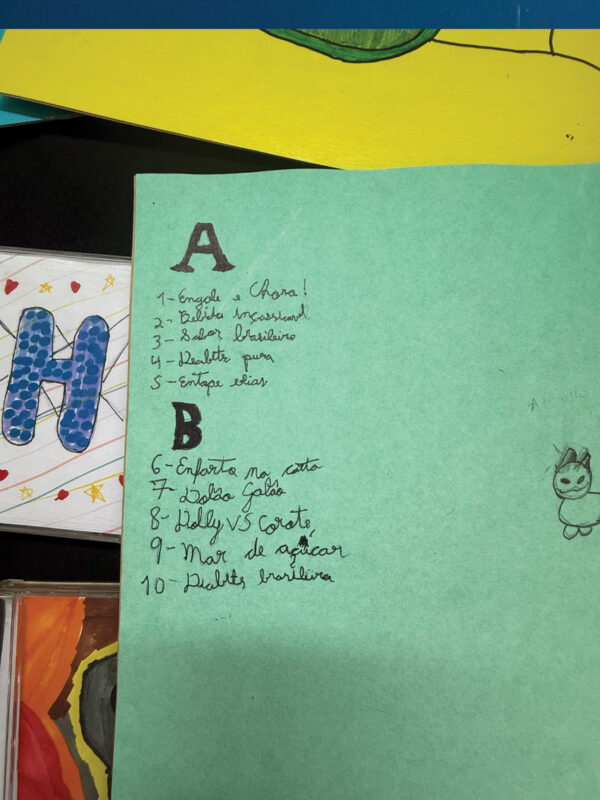 A
1 - Engole e Chora!
2 - Bebida
3 - Sabor brasileiro
4 - Deabtte pura
5 - Entope
B
6 - Enfarto na
7 - Dolão Galão
8 - Dolly VS Corote
9 - Mar de açúcar
10 - Diabtts brasileira
H